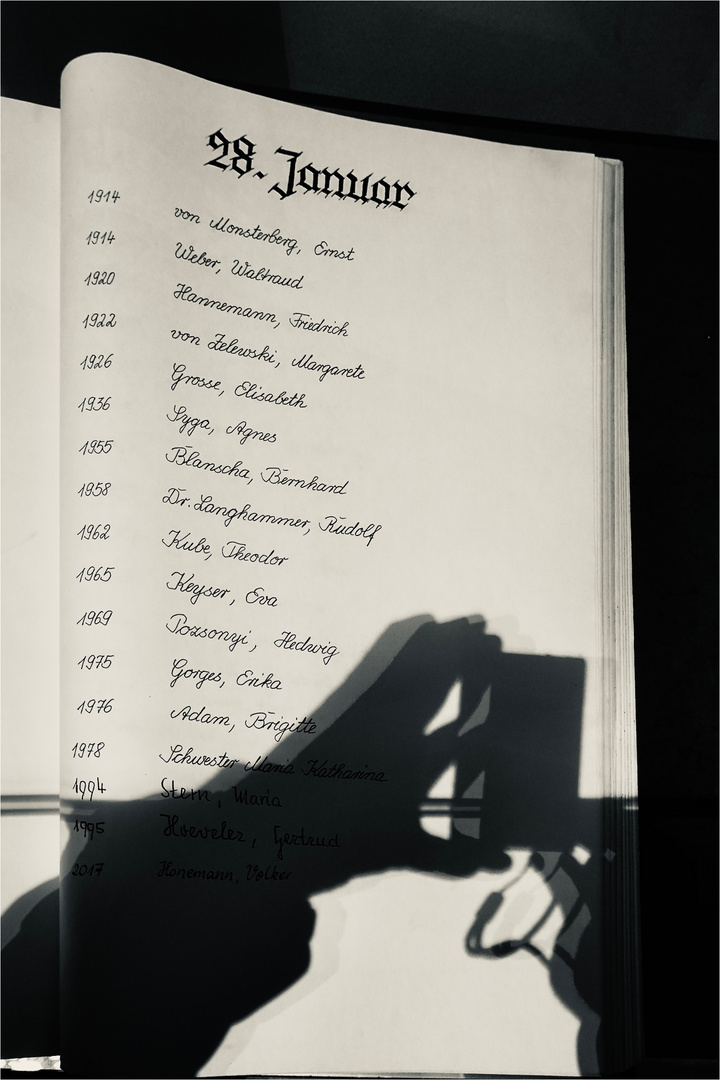 28. Januar
1914 von Monsterberg, Ernst
1914 Weber, Waltraud
1920 Hannemann, Friedrich
1922 von Zelewski, Margarete
1926 Grosse, Elisabeth
1936 Syga, Agnes
1955 Blanscha, Bernhard
1958 Dr. Langhammer, Rudolf
1962 Kube, Theodor
1965 Keyser, Eva
1969 Pozsonyi, Hedwig
1975 Gorges, Erika
1976 Adam, Brigitte
1978 Schwester Maria Katharina
1994 Stern, Maria
1995 Hoeveler, Gertrud
2017 Honemann, Volker